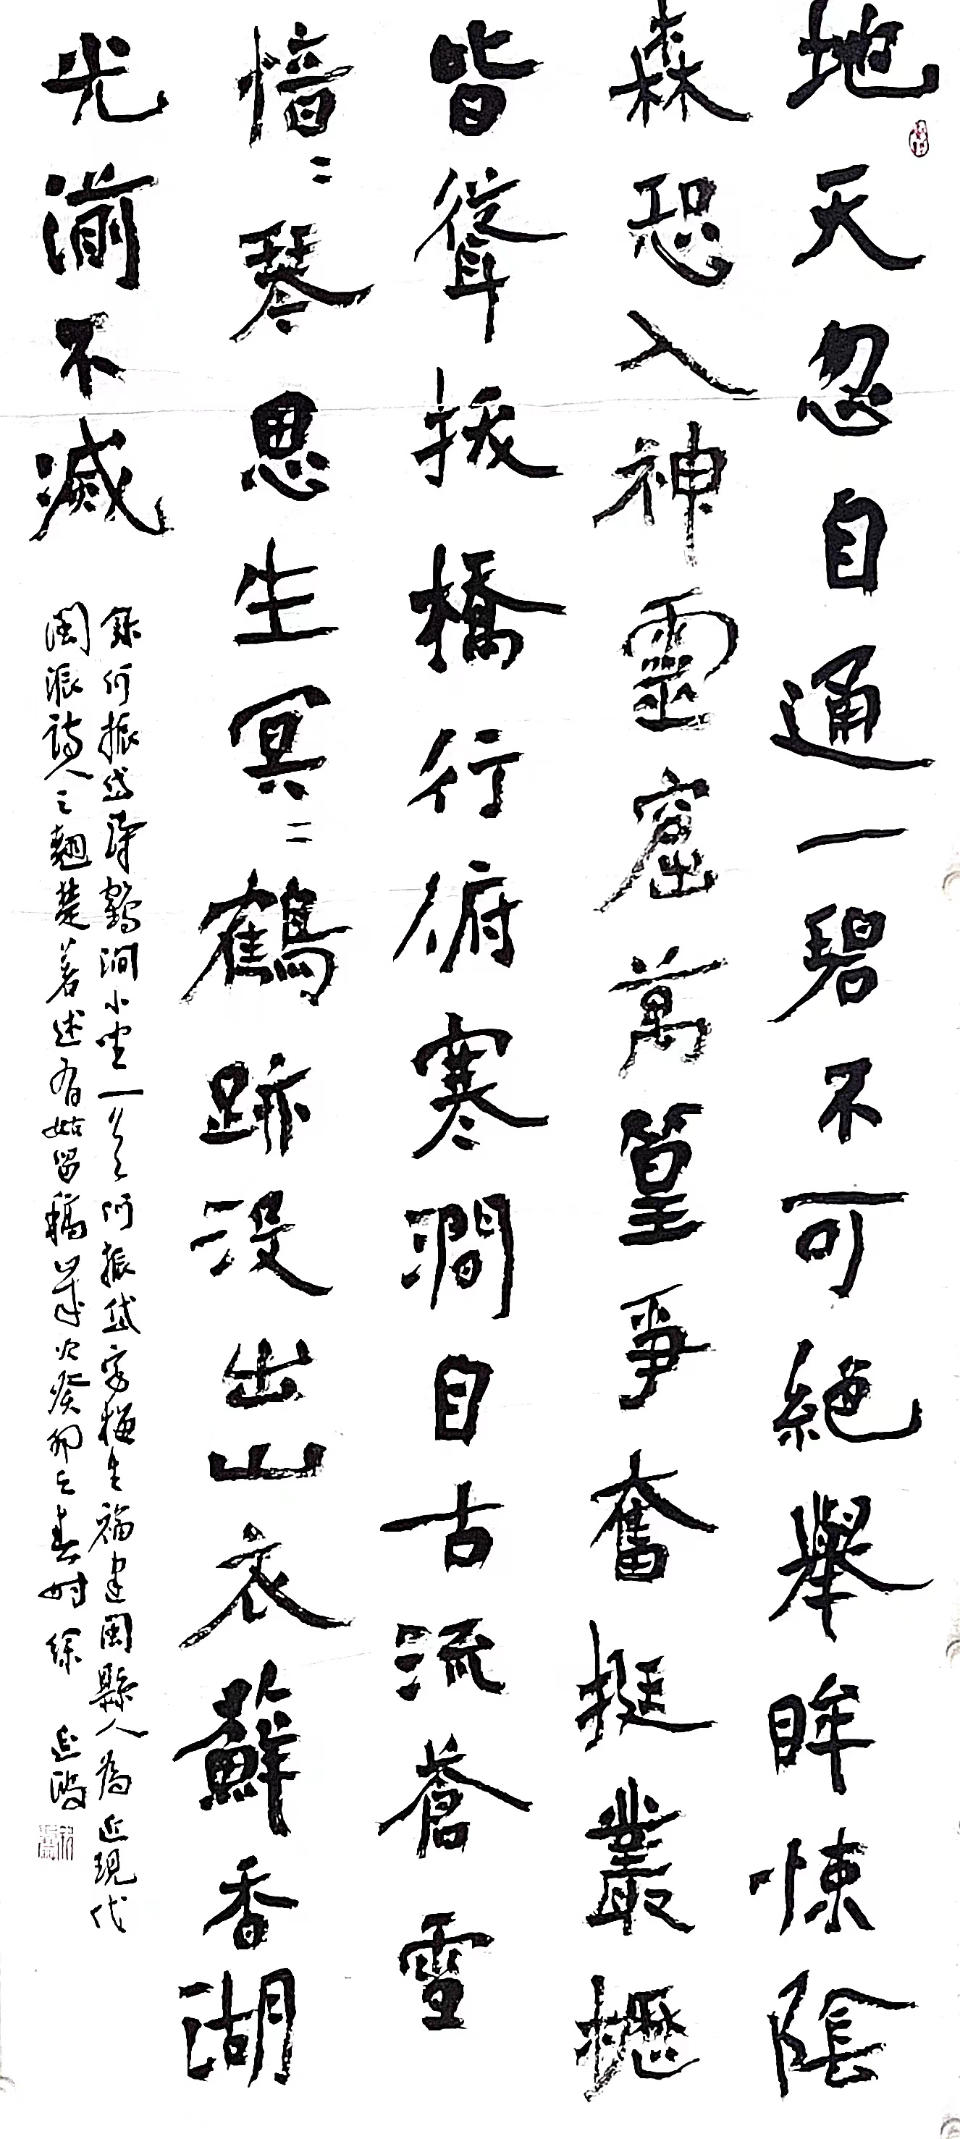 地天忽自通一碧不可絕舉眸悚陰
森恐入神靈窟萬篁爭奮挺叢櫪
皆聳拔橋行俯寒澗自古流蒼雪
愔〻琴思生冥〻鶴跡沒出山衣蘚香湖
光湔不滅
錄何振岱尋鶴澗小坐一首何振岱字梅生福建閩縣人為近現代
閩派詩人之翹楚著述有姑留稿歲次癸卯之春時 徐